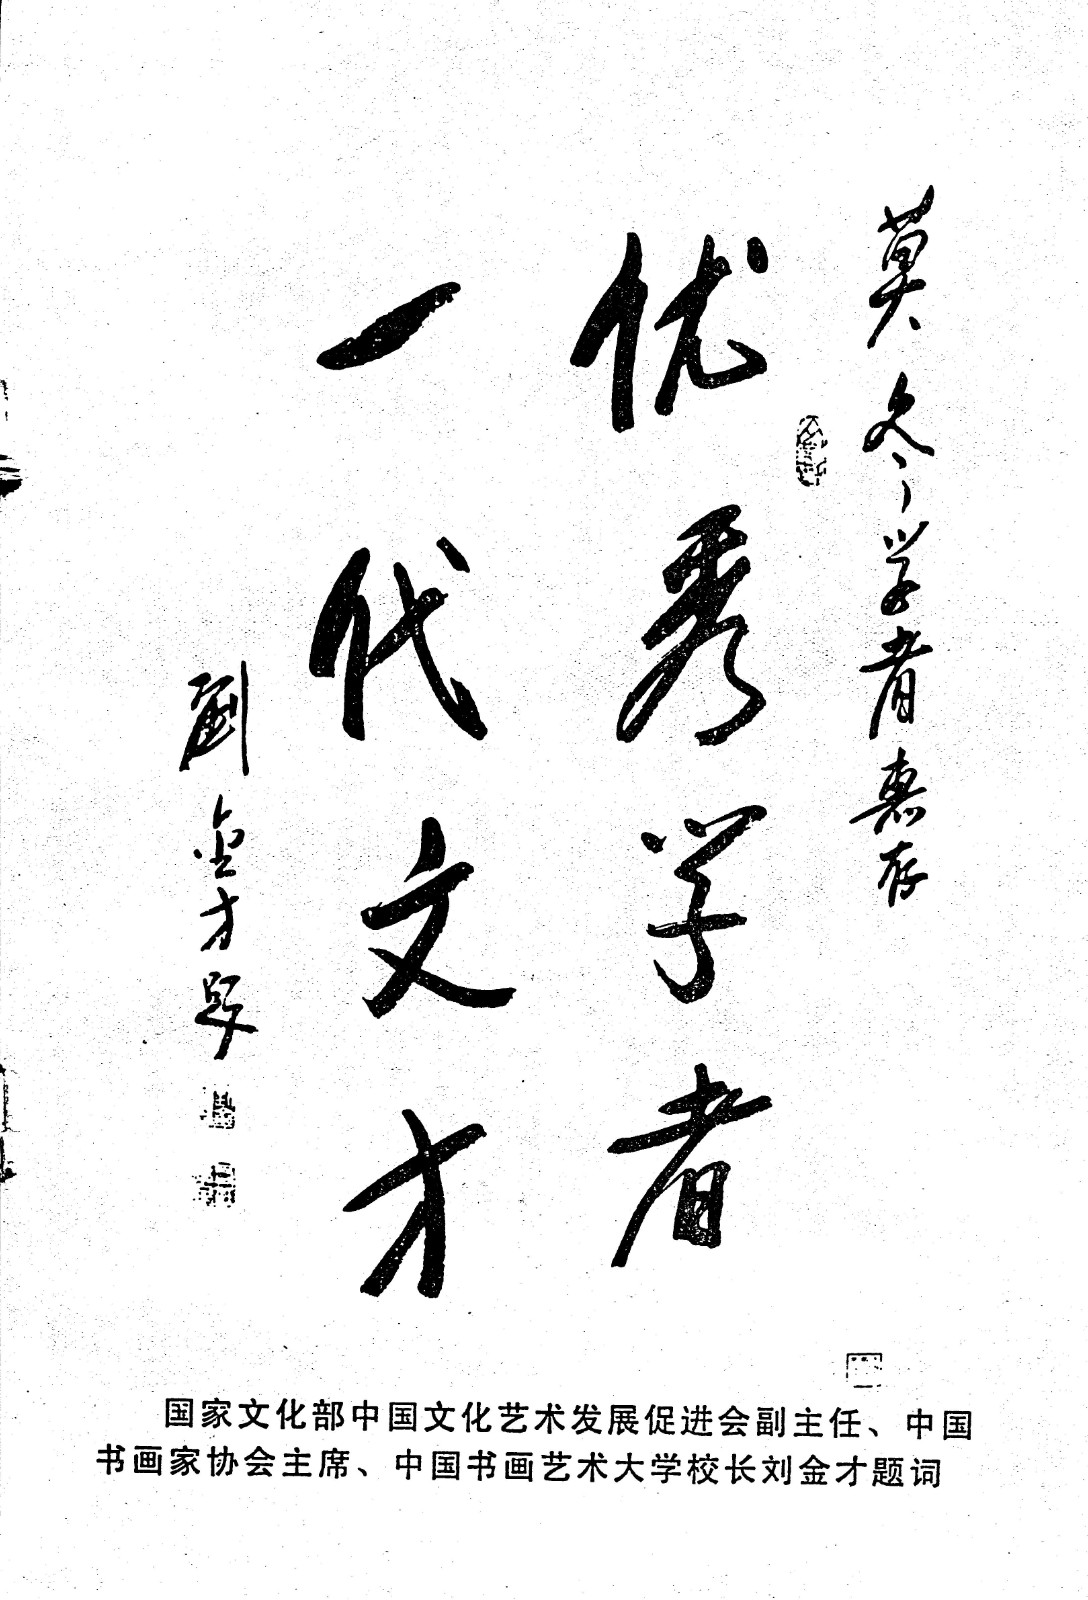 莫冬学者惠存
优秀学者
一代文才
劉金才题
国家文化部中国文化艺术发展促进会副主任、中国
书画家协会主席、中国书画艺术大学校长刘金才题词